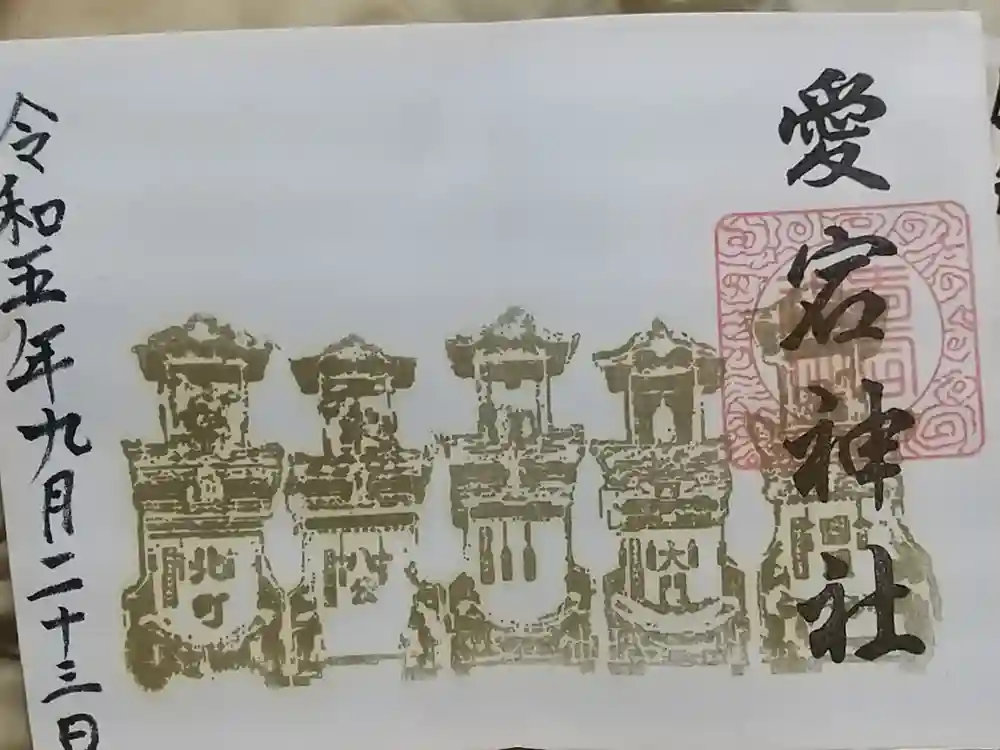 愛宕神社
北町
八公
大門
令和五年九月二十三日